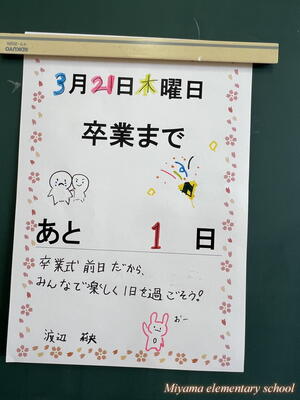 3月21日木曜日
卒業まで
あと 1 日
卒業式 前日だから、
みんなで楽しく1日を過ごそう!
おー
渡辺
Miyama elementary school